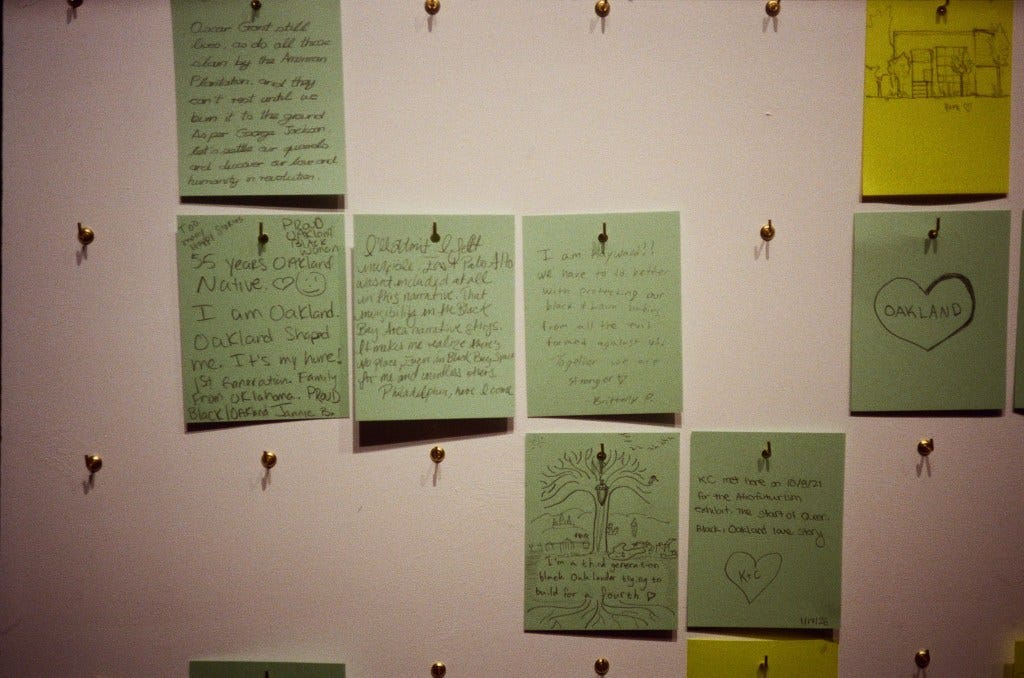 Oscar Grant still
lives, as do all those
slain by the American
Plantation, and they
can't rest until we
burn it to the ground.
As per George Jackson,
let's settle our quarrels
and discover our love and
humanity in revolution.
HOME ♡
Too
many
Happy Stories
PROUD
OAKland
BlACK
Women
55 years OAKland
Native. ♡
I am Oakland.
Oakland Shaped
me. It's my home!
1st Generation. Family
From OKlahoma. PROUD
Black/OAKland Jannie B.
I'll admit I felt
invisible. East Palo Alto
wasn't included at all
in this narrative. That
invisibility in the Black
Bay Area narrative stings.
It makes me realize there's
no place, Even in Black Bay Space
for me and countless others.
Philadelphia, here I come
I am Hayward!!
We have to do better
with protecting our
black & brown
from all the evil
formed against us.
Together we are
stronger ♡
- Brittany P.
OAKLAND
I'm a third generation
black Oaklander trying to
build for a fourth ♡
KC met here on 10/8/21
for the Afrofuturism
exhibit. The start of Queer,
Black, Oakland love story
K+C